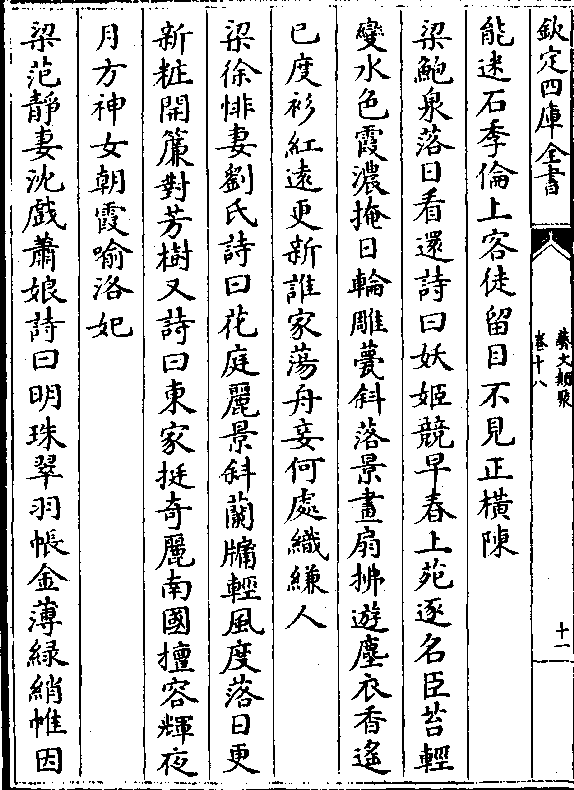 欽定四庫全書
藝文類聚
卷十八
十一
能迷石季倫上客徒留目不見正橫陳
梁鮑泉落日看還詩曰妖姬競早春上苑逐名臣苔輕
變水色霞濃掩日輪雕甍斜落景畫扇拂遊塵衣香遙
已度衫紅遠更新誰家蕩舟妾何處織縑人
梁徐悱妻劉氏詩曰花庭麗景斜蘭牖輕風度落日更
新粧開簾對芳樹又詩曰東家挺奇麗南國擅容輝夜
月方神女朝霞喻洛妃
梁范靜妻沈戲蕭娘詩曰明珠翠羽帳金薄綠綃帷因